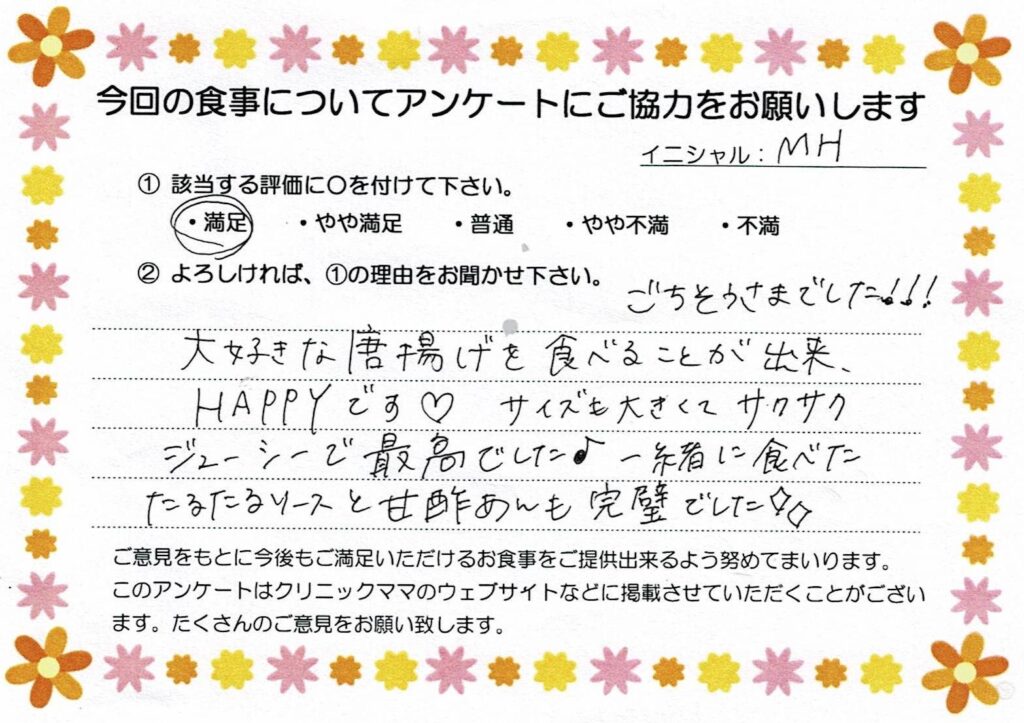 今回の食事についてアンケートにご協力をお願いします
イニシャル：MH
① 該当する評価に〇を付けて下さい。
・満足 ・やや満足 ・普通 ・やや不満 ・不満
② よろしければ、①の理由をお聞かせ下さい。
ごちそうさまでした!!!
大好きな唐揚げを食べることが出来、
HAPPYです♡ サイズも大きくてサクサク
ジューシーで最高でした♪ 一緒に食べた
たるたるソースと甘酢あんも完璧でした✧✧
ご意見をもとに今後もご満足いただけるお食事をご提供出来るよう努めてまいります。
このアンケートはクリニックママのウェブサイトなどに掲載させていただくことがござい
ます。たくさんのご意見をお願い致します。